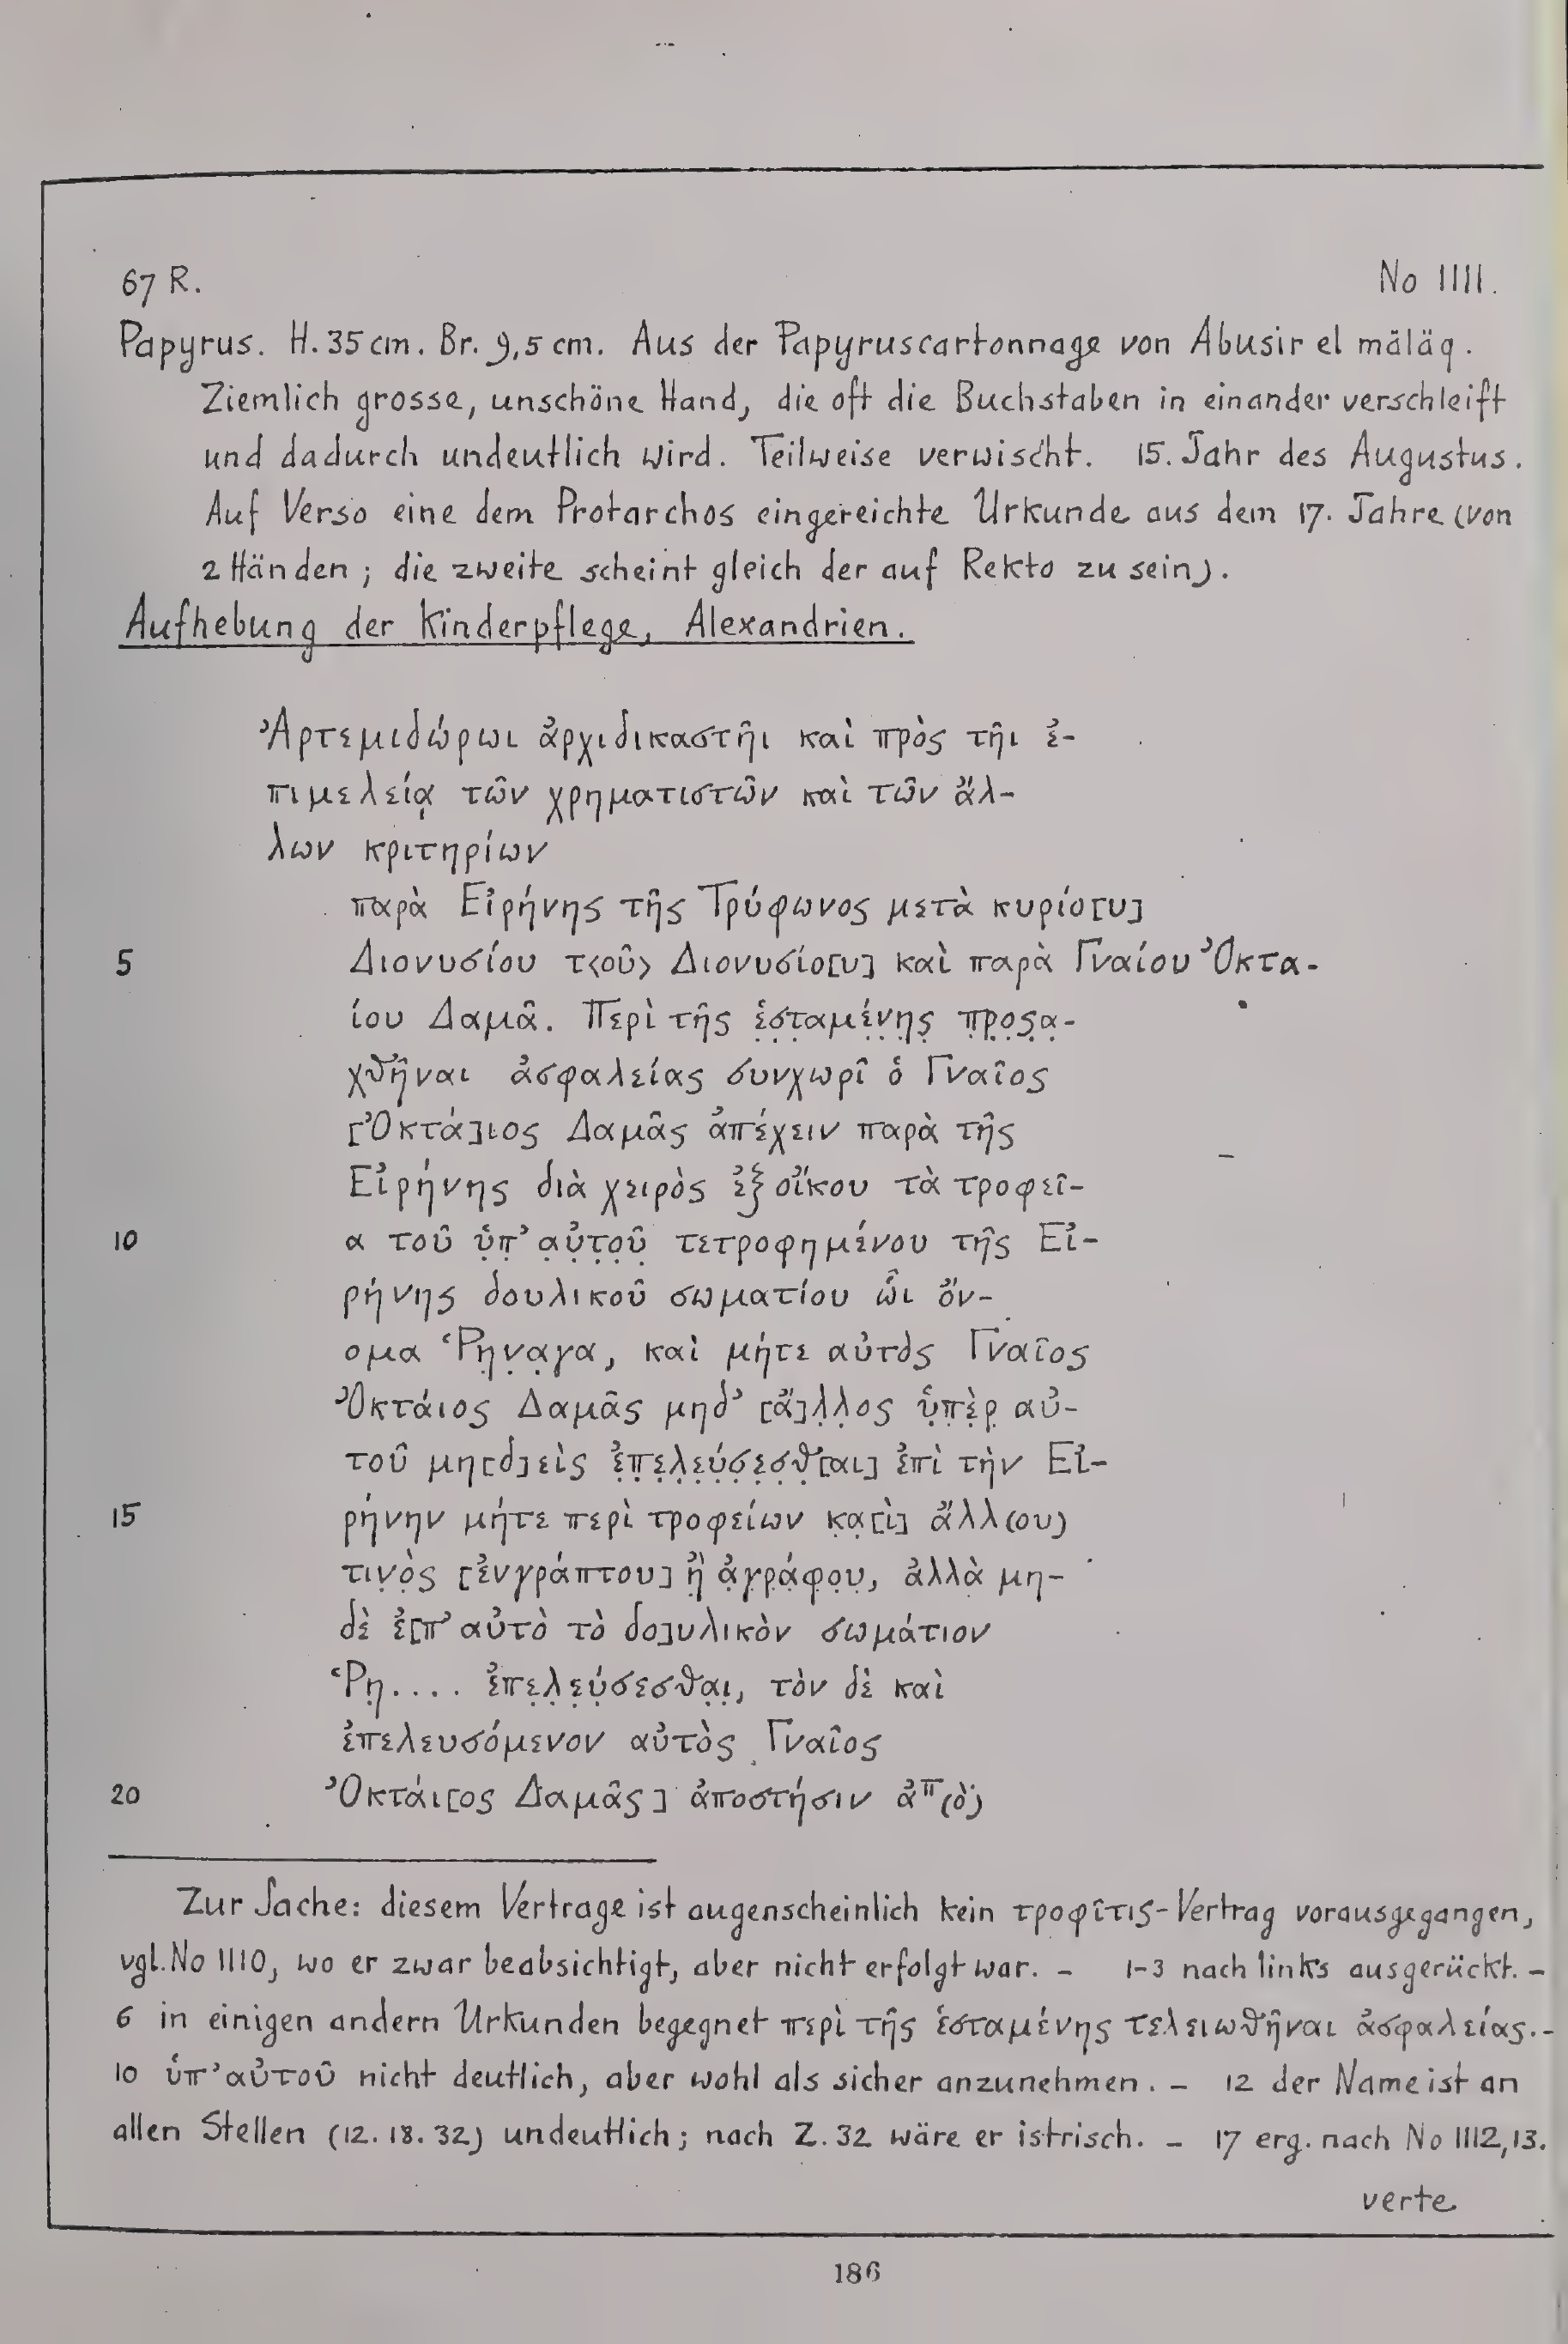 67 R. No 1111.
Papyrus. H. 35 cm. Br. 9,5 cm. Aus der Papyruscartonnage von Abusir el mäläq.
Ziemlich grosse, unschöne Hand, die oft die Buchstaben in einander verschleift
und dadurch undeutlich wird. Teilweise verwischt. 15. Jahr des Augustus.
Auf Verso eine dem Protarchos eingereichte Urkunde aus dem 17. Jahre (von
2 Händen; die zweite scheint gleich der auf Rekto zu sein).
Aufhebung der Kinderpflege, Alexandrien.
Ἀρτεμιδώρωι ἀρχιδικαστῆι καὶ πρὸς τῆι ἐ-
πιμελείᾳ τῶν χρηματιστῶν καὶ τῶν ἄλ-
λων κριτηρίων
παρὰ Εἰρήνης τῆς Τρύφωνος μετὰ κυρίο[υ]
5 Διονυσίου τ<οῦ> Διονυσίο[υ] καὶ παρὰ Γναίου Ὀκτα-
ίου Δαμᾶ. Περὶ τῆς ἑ̣σ̣τ̣αμέ̣ν̣η̣ς̣ π̣ρ̣ο̣ς̣α̣-
χθῆναι ἀσφαλείας συνχωρῖ ὁ Γναῖος
[Ὀκτά]ιος Δαμᾶς ἀπέχειν παρὰ τῆς
Εἰρήνης διὰ χειρὸς ἐξ οἴκου τὰ τροφεῖ-
10 α τοῦ ὑ̣π̣’ α̣ὐ̣τ̣ο̣ῦ̣ τετροφημένου τῆς Εἰ-
ρήνης δουλικοῦ σωματίου ὧι ὄν-
ομα Ῥη̣ν̣α̣γα, καὶ μήτε αὐτὸς Γναῖος
Ὀκτάιος Δαμᾶς μηδ’ [ἄ]λ̣λ̣ος ὑ̣π̣ὲ̣ρ̣ αὐ-
τοῦ μη[δ]εὶς ἐ̣π̣ε̣λ̣ε̣ύ̣σ̣ε̣σ̣θ̣[αι] ἐπὶ τὴν Εἰ-
15 ρήνην μήτε περὶ τροφείων κ̣α̣[ὶ] ἄλλ(ου)
τιν̣ὸ̣ς [ἐνγράπτου] ἢ̣ ἀ̣γ̣ρ̣ά̣φ̣ο̣υ̣, ἀλλὰ μη-
δὲ ἐ[π’ αὐτὸ τὸ δο]υλικὸν σωμάτιον
Ῥη̣.... ἐπε̣λ̣ε̣ύ̣σεσθα̣ι̣, τὸν δὲ καὶ
ἐπελευσόμενον αὐτὸς Γναῖος
20 Ὀκτάι[ος Δαμᾶς] ἀποστήσιν ἀπ(ὸ)
Zur Sache: diesem Vertrage ist augenscheinlich kein τροφῖτις-Vertrag vorausgegangen,
vgl. No 1110, wo er zwar beabsichtigt, aber nicht erfolgt war. – 1-3 nach links ausgerückt. –
6 in einigen andern Urkunden begegnet περὶ τῆς ἑσταμένης τελειωθῆναι ἀσφαλείας. –
10 ὑπ’ αὐτοῦ nicht deutlich, aber wohl als sicher anzunehmen. – 12 der Name ist an
allen Stellen (12. 18. 32) undeutlich; nach Z. 32 wäre er istrisch. – 17 erg. nach No 1112, 13.
verte
186